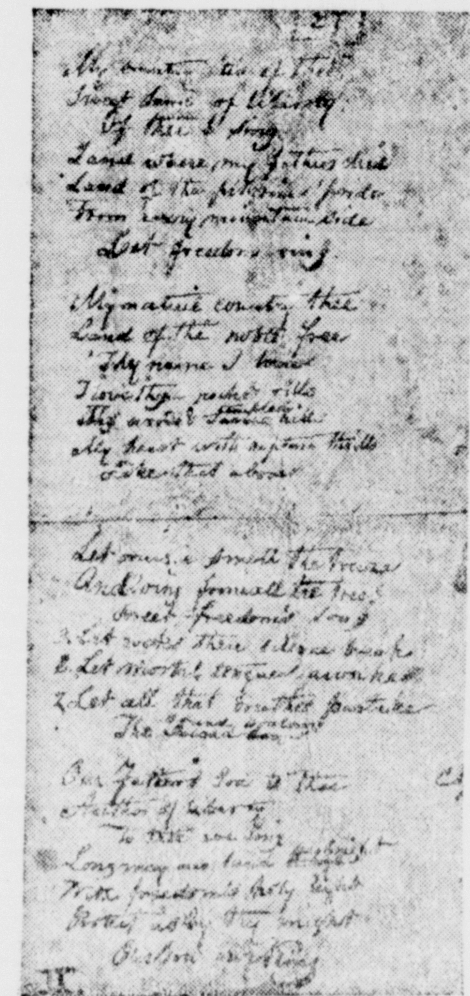 My country tis of thee
Sweet land of liberty
Of thee I sing
Land where my fathers died
Land of the pilgrims' pride
From every mountain side
Let freedom ring.
My native country thee
Land of the noble free
Thy name I love
I love thy rocks & rills
Thy woods & templed hills
My heart with rapture thrills
Like that above
Let music swell the breeze
And ring from all the trees
Sweet freedom's song
3. Let rocks their silence break
2. Let mortal tongues awake
2. Let all that breathes partake
The
Our Father's God to thee
Author of liberty
To thee we sing
Long may our land be bright
With freedom's holy light
Protect us by thy might
Our God our King